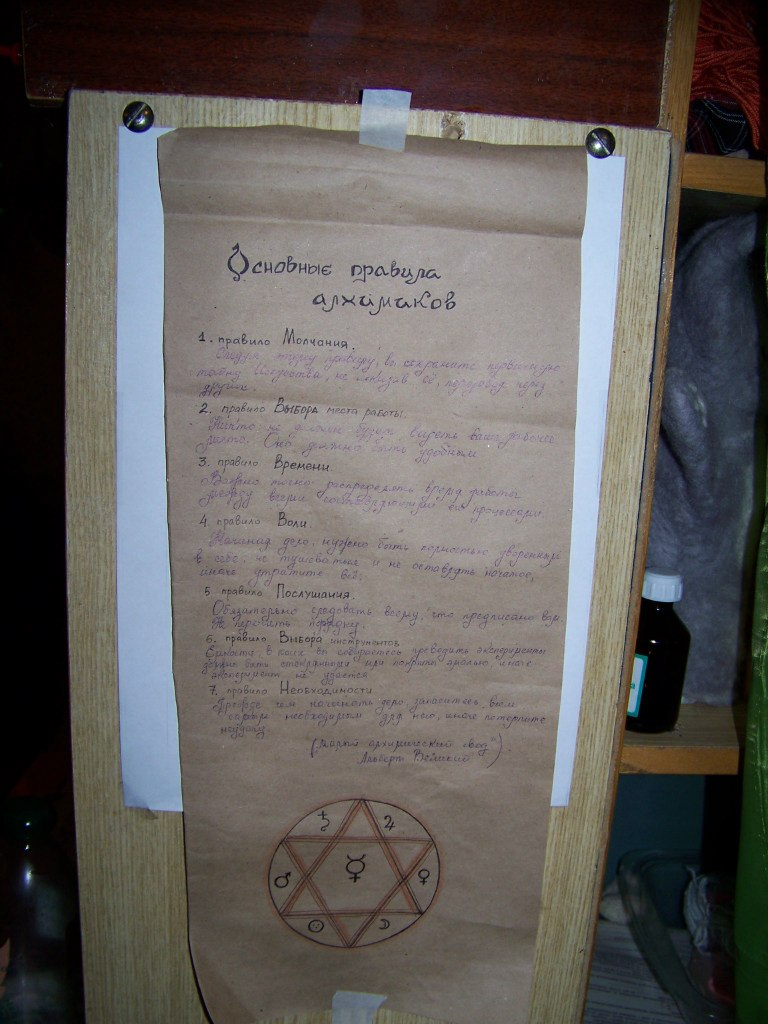 Основные правила
алхимиков
1. правило Молчания.
Следуя этому правилу, вы сохраните первичную
тайну
других.
2. правило Выбора места работы.
Никто не должен будет видеть ваше рабочее
место. Оно должно быть удобным
3. правило Времени.
Важно точно распределять время работы
между всеми составляющими её процессами.
4 правило Воли.
Начиная дело, нужно быть полностью уверенным
в себе, не и не оставлять начатое,
иначе утратите всё.
5 правило Послушания.
Обязательно следовать всему, что предписано вам.
Не порядку.
6. правило Выбора инструментов.
Ёмкости, в коих вы собираетесь проводить эксперименты
должны быть стеклянными или покрыты эмалью, иначе
эксперимент не удастся
7. правило Необходимости
Прежде чем начинать дело, запаситесь всем
сырьём необходимым для него, иначе потерпите
неудачу
("Малый алхимический свод").
Альберт Великий